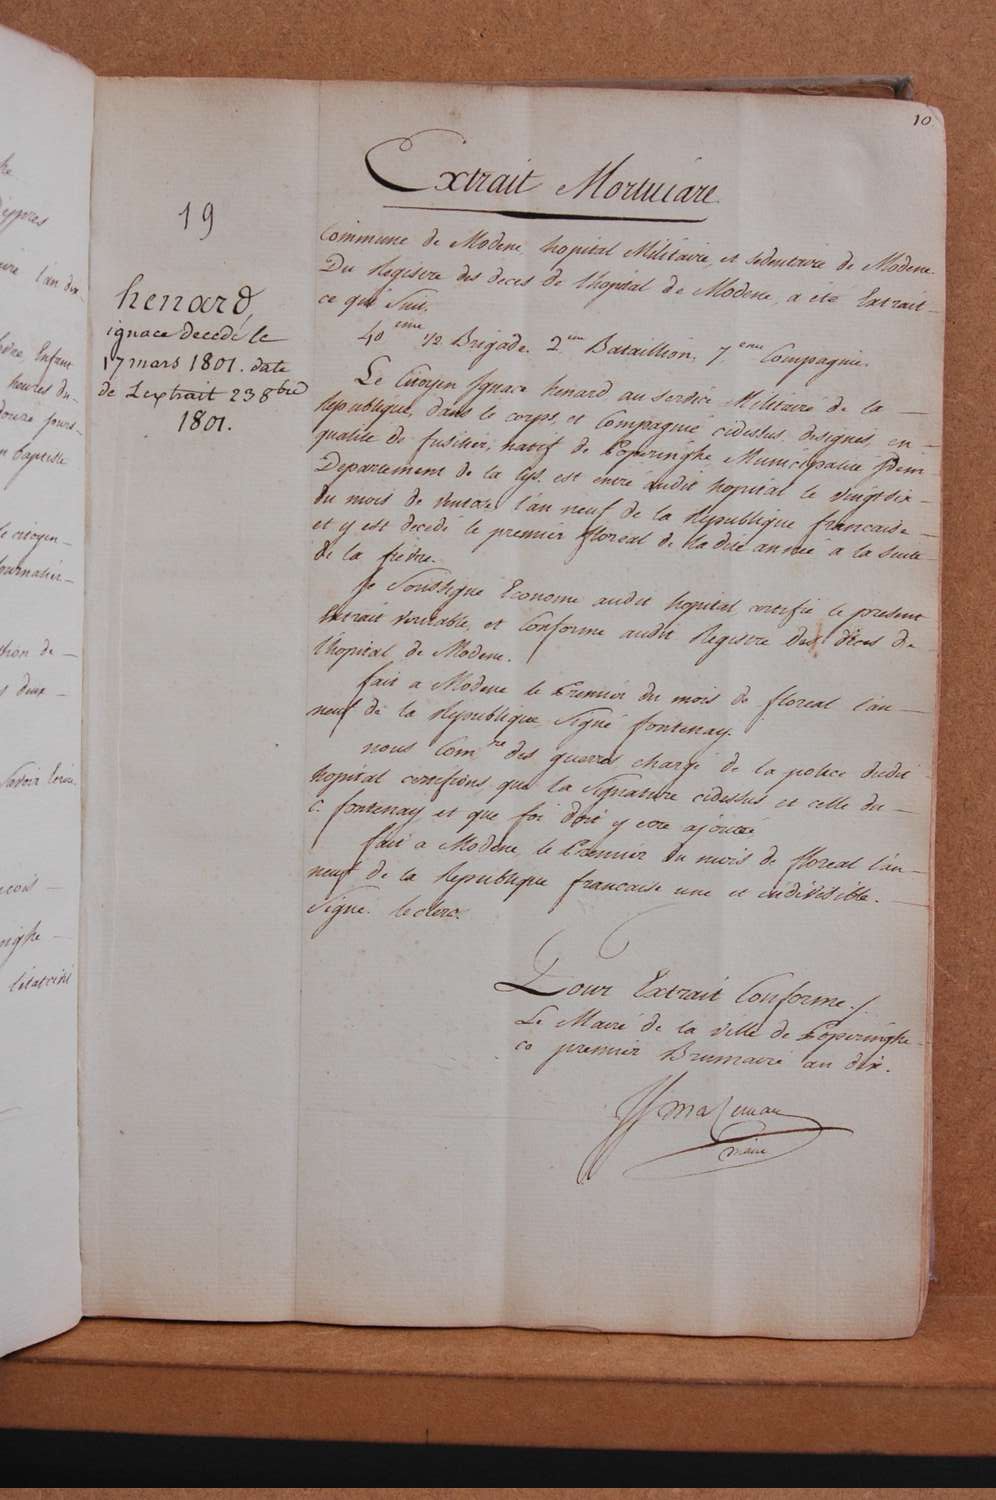 10
Extrait Mortuiare
19
henard,
ignace decedé le
17 mars 1801. date
de Lextrait 23 8bre
1801.
Commune de Modene, hopital Militaire, et sedentaire de Modene
Du Registre des deces de l'hopital de Modene, a été Extrait
ce qui Suit.
40 eme 1/2 Brigade. 2 eme Bataillion, 7 eme Compagnie.
Le Citoyen Ignace henard au service Militaire de la
Republique, dans le corps, et Compagnie cidessus designés, en
qualité de fusilier, natif de Poperinghe Municipalité Idem
Departement de la Lys. est entré audit hopital le vingt six
du mois de l'an neuf de la Republique francaise
et y est decedé le premier floreal de la dite année a la suite
de la fievre.
Je Soussigne Econome audit hopital, certifie le present
Extrait veritable, et Conforme audit Registre des déces de
l'hopital de Modene.
fait a Modene le Premier du mois de floreal l'an
neuf de la Republique, Signé fontenay.
nous Comre des guerres chargé de la police dudit
hopital certifions que la Signature cidessus et celle du
C. fontenay et que foi doit y etre ajoutée,
fait a Modene, le Premier du mois de floreal l'an
neuf de la Republique francaise une et indivisible.
Signé. leclerc.
Pour Extrait Conforme./
Le Maire de la ville de Poperinghe
ce premier Brumaire an dix.
maire
he
d'yppres
l'an dix
Enfant
heures du
jours
baptiste
le citoyen
journalier
de
deux
Savoir Ecrire
l'etat civil